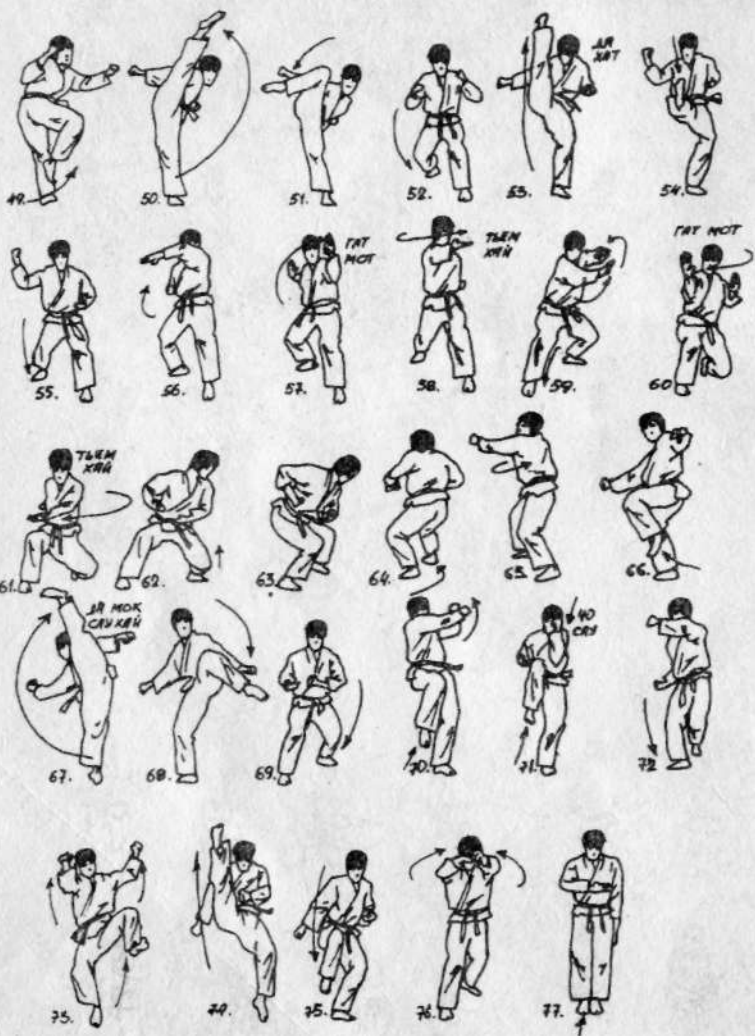 49.
50.
51.
52.
53.
ДА
ХАТ
54.
55.
56.
57.
ГАТ
МОТ
58.
ТЬЕМ
ХАЙ
59.
ГАТ МОТ
60
61.
ТЬЕМ
ХАЙ
62.
63.
64.
65.
66.
67.
ДА МОК
САУ ХАЙ
68.
69.
70.
71.
ЧО
САУ
72
73.
74.
75.
76.
77.